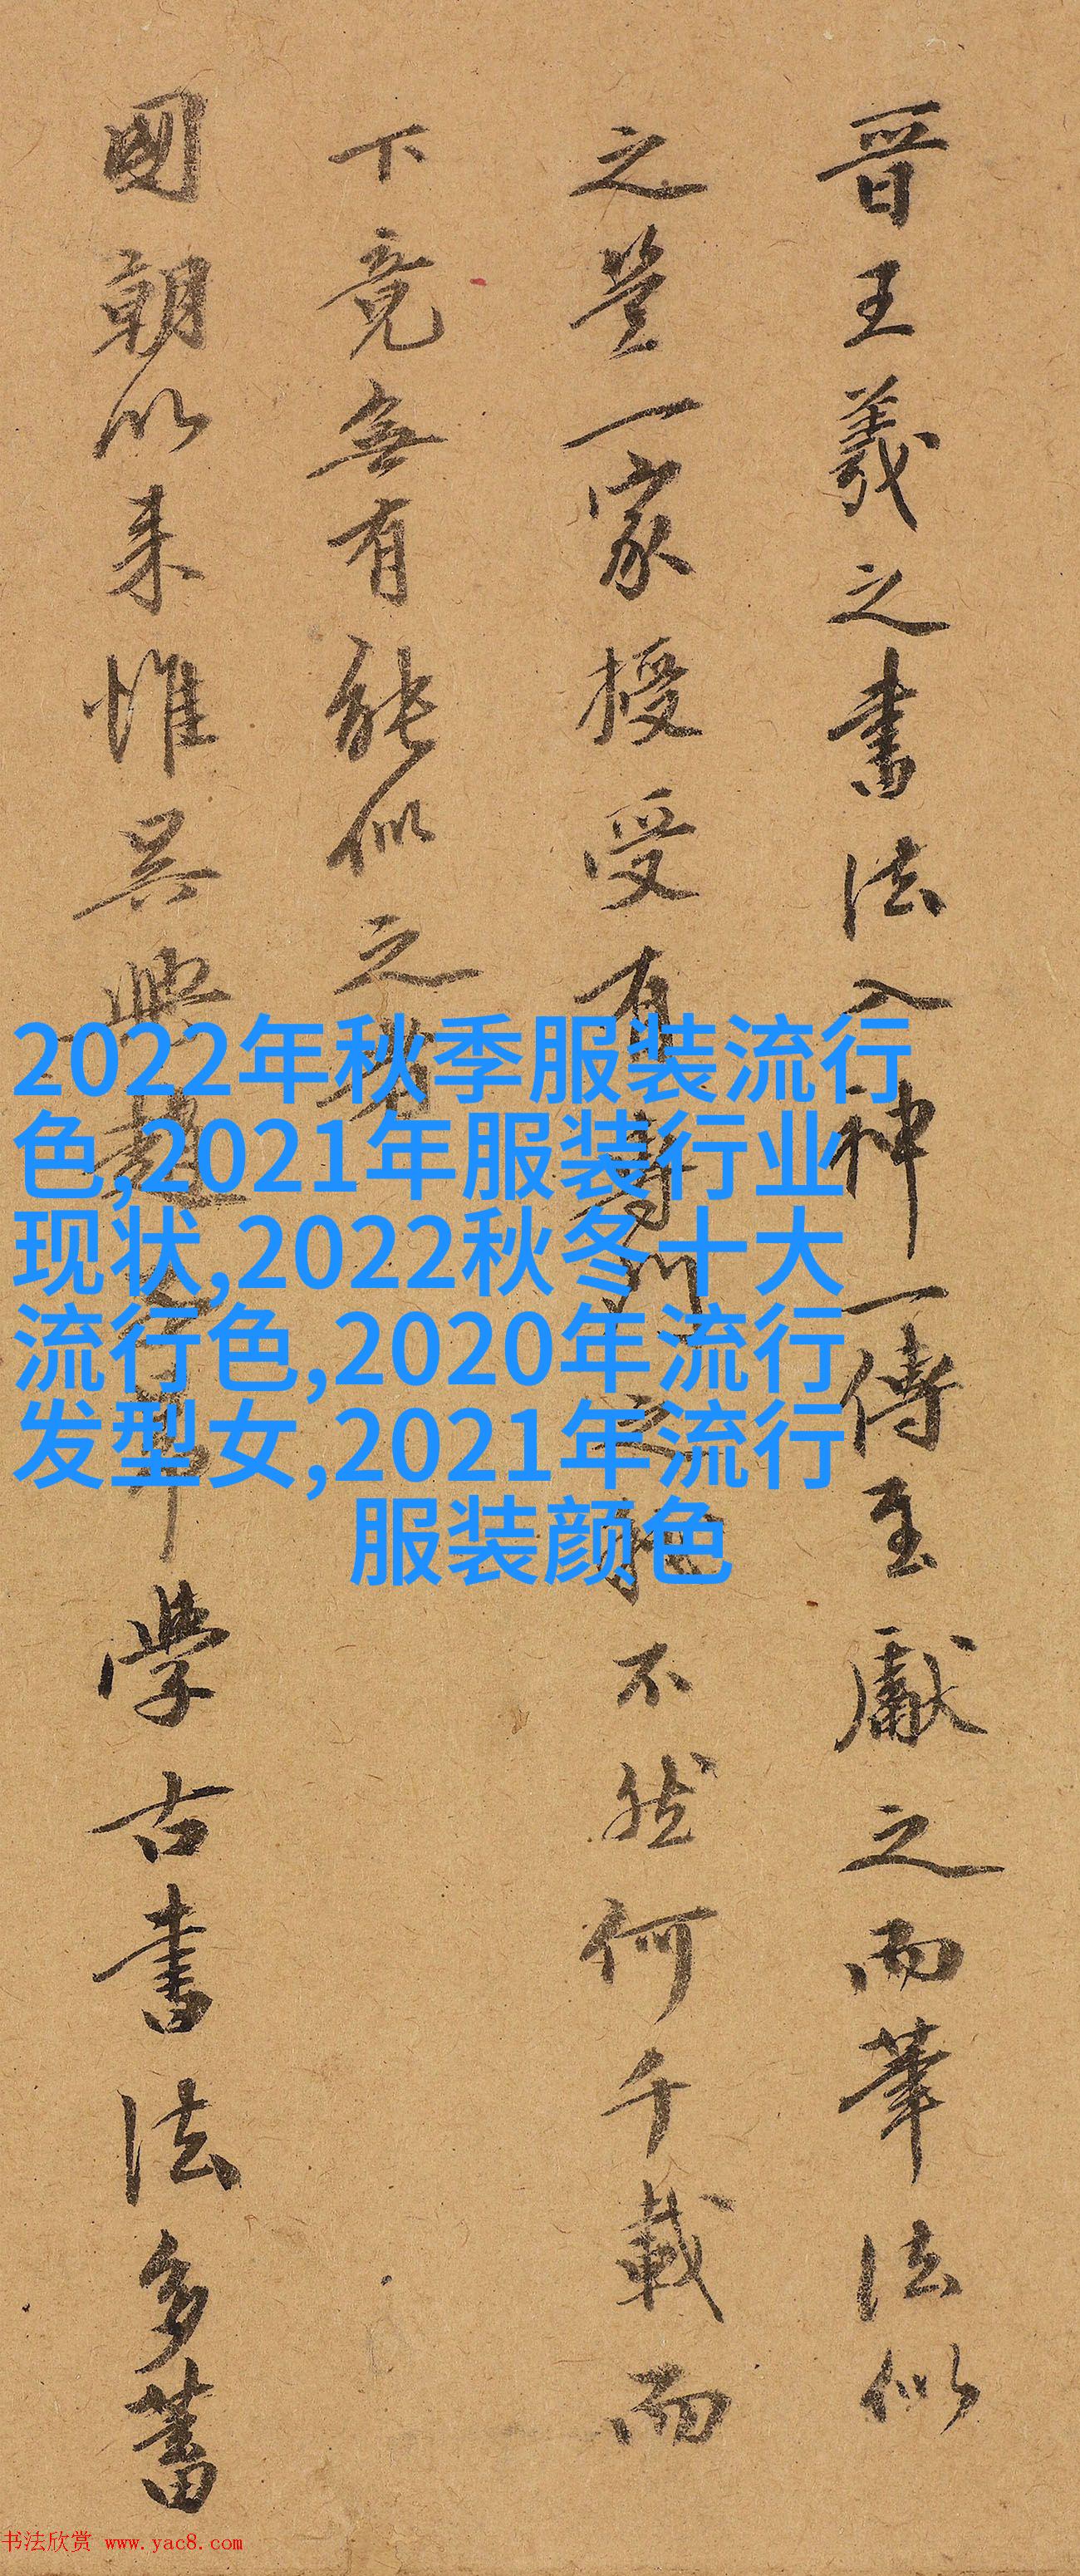 晋王羲之書法入神一傳至獻之而筆法似
之豈一家授受有專門之於不然何千載而
下竟無有能似之者
國朝以来惟吴興趙子昂學古書法多蓄
2022年秋季服装流行
色,2021年服装行业
现状,2022秋冬十大
流行色,2020年流行
发型女,2021年流行
服装颜色
书法欣赏 www.yac8.com